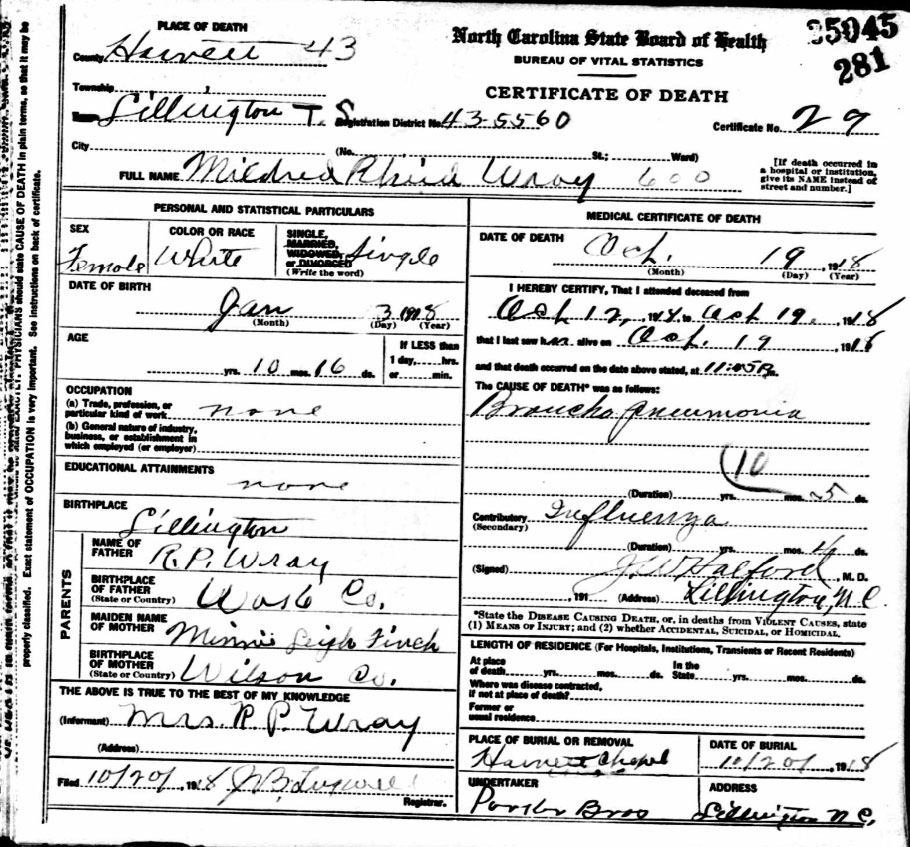 PLACE OF DEATH
County Harnett 43
North Carolina State Board of Health
35045
281
BUREAU OF VITAL STATISTICS
CERTIFICATE OF DEATH
Township
Lillington T. S.
Registration District No. 43-5560
Certificate No. 29
City
(No. St.; Ward)
FULL NAME Mildred Wray 600
[If death occurred in
a hospital or institution,
give its NAME instead of
street and number.]
PERSONAL AND STATISTICAL PARTICULARS
SEX
Female
COLOR OR RACE
White
SINGLE,
MARRIED,
WIDOWED
or DIVORCED
(Write the word)
Single
DATE OF BIRTH
Jan 3 1918
(Month) (Day) (Year)
AGE
yrs. 10 mos. 16 ds.
If LESS than
1 day, hrs.
or min.
OCCUPATION
(a) Trade, profession, or
particular kind of work none
(b) General nature of industry,
business, or establishment in
which employed (or employer)
EDUCATIONAL ATTAINMENTS
none
BIRTHPLACE
Lillington
PARENTS
NAME OF
FATHER
R.P. Wray
BIRTHPLACE
OF FATHER
(State or Country) Wake Co.
MAIDEN NAME
OF MOTHER Minnie Leigh Finch
BIRTHPLACE
OF MOTHER
(State or Country) Wilson Co.
THE ABOVE IS TRUE TO THE BEST OF MY KNOWLEDGE
(Informant) Mrs. R. P. Wray
(Address)
Filed 10/20, 1918
Registrar.
MEDICAL CERTIFICATE OF DEATH
DATE OF DEATH
Oct. 19, 1918
(Month) (Day) (Year)
I HEREBY CERTIFY, That I attended deceased from
Oct 12, 1918, to Oct 19, 1918
that I last saw her alive on Oct. 19 1918
and that death occurred on the date above stated, at 11:45 P.m.
The CAUSE OF DEATH* was as follows:
Broncho Pneumonia
(10
(Duration) yrs. mos. 5 ds.
Contributory Influenza
(Secondary)
(Duration) yrs. mos. ds.
(Signed) J.W. Halford, M. D.
191 (Address) Lillington, N.C.
*State the DISEASE CAUSING DEATH, or, in deaths from VIOLENT CAUSES, state
(1) MEANS OF INJURY; and (2) whether ACCIDENTAL, SUICIDAL, or HOMICIDAL.
LENGTH OF RESIDENCE (For Hospitals, Institutions, Transients or Recent Residents)
At place
of death yrs. mos. ds.
In the
State yrs. mos. ds.
Where was disease contracted,
if not at place of death?
Former or
usual residence
PLACE OF BURIAL OR REMOVAL
Harnett Chapel
DATE OF BURIAL
10/20, 1918
UNDERTAKER
Porter Bros
ADDRESS
Lillington N.C.
PHYSICIANS should state CAUSE OF DEATH in plain terms, so that it may be
properly classified. Exact statement of OCCUPATION is very important. See instructions on back of certificate.